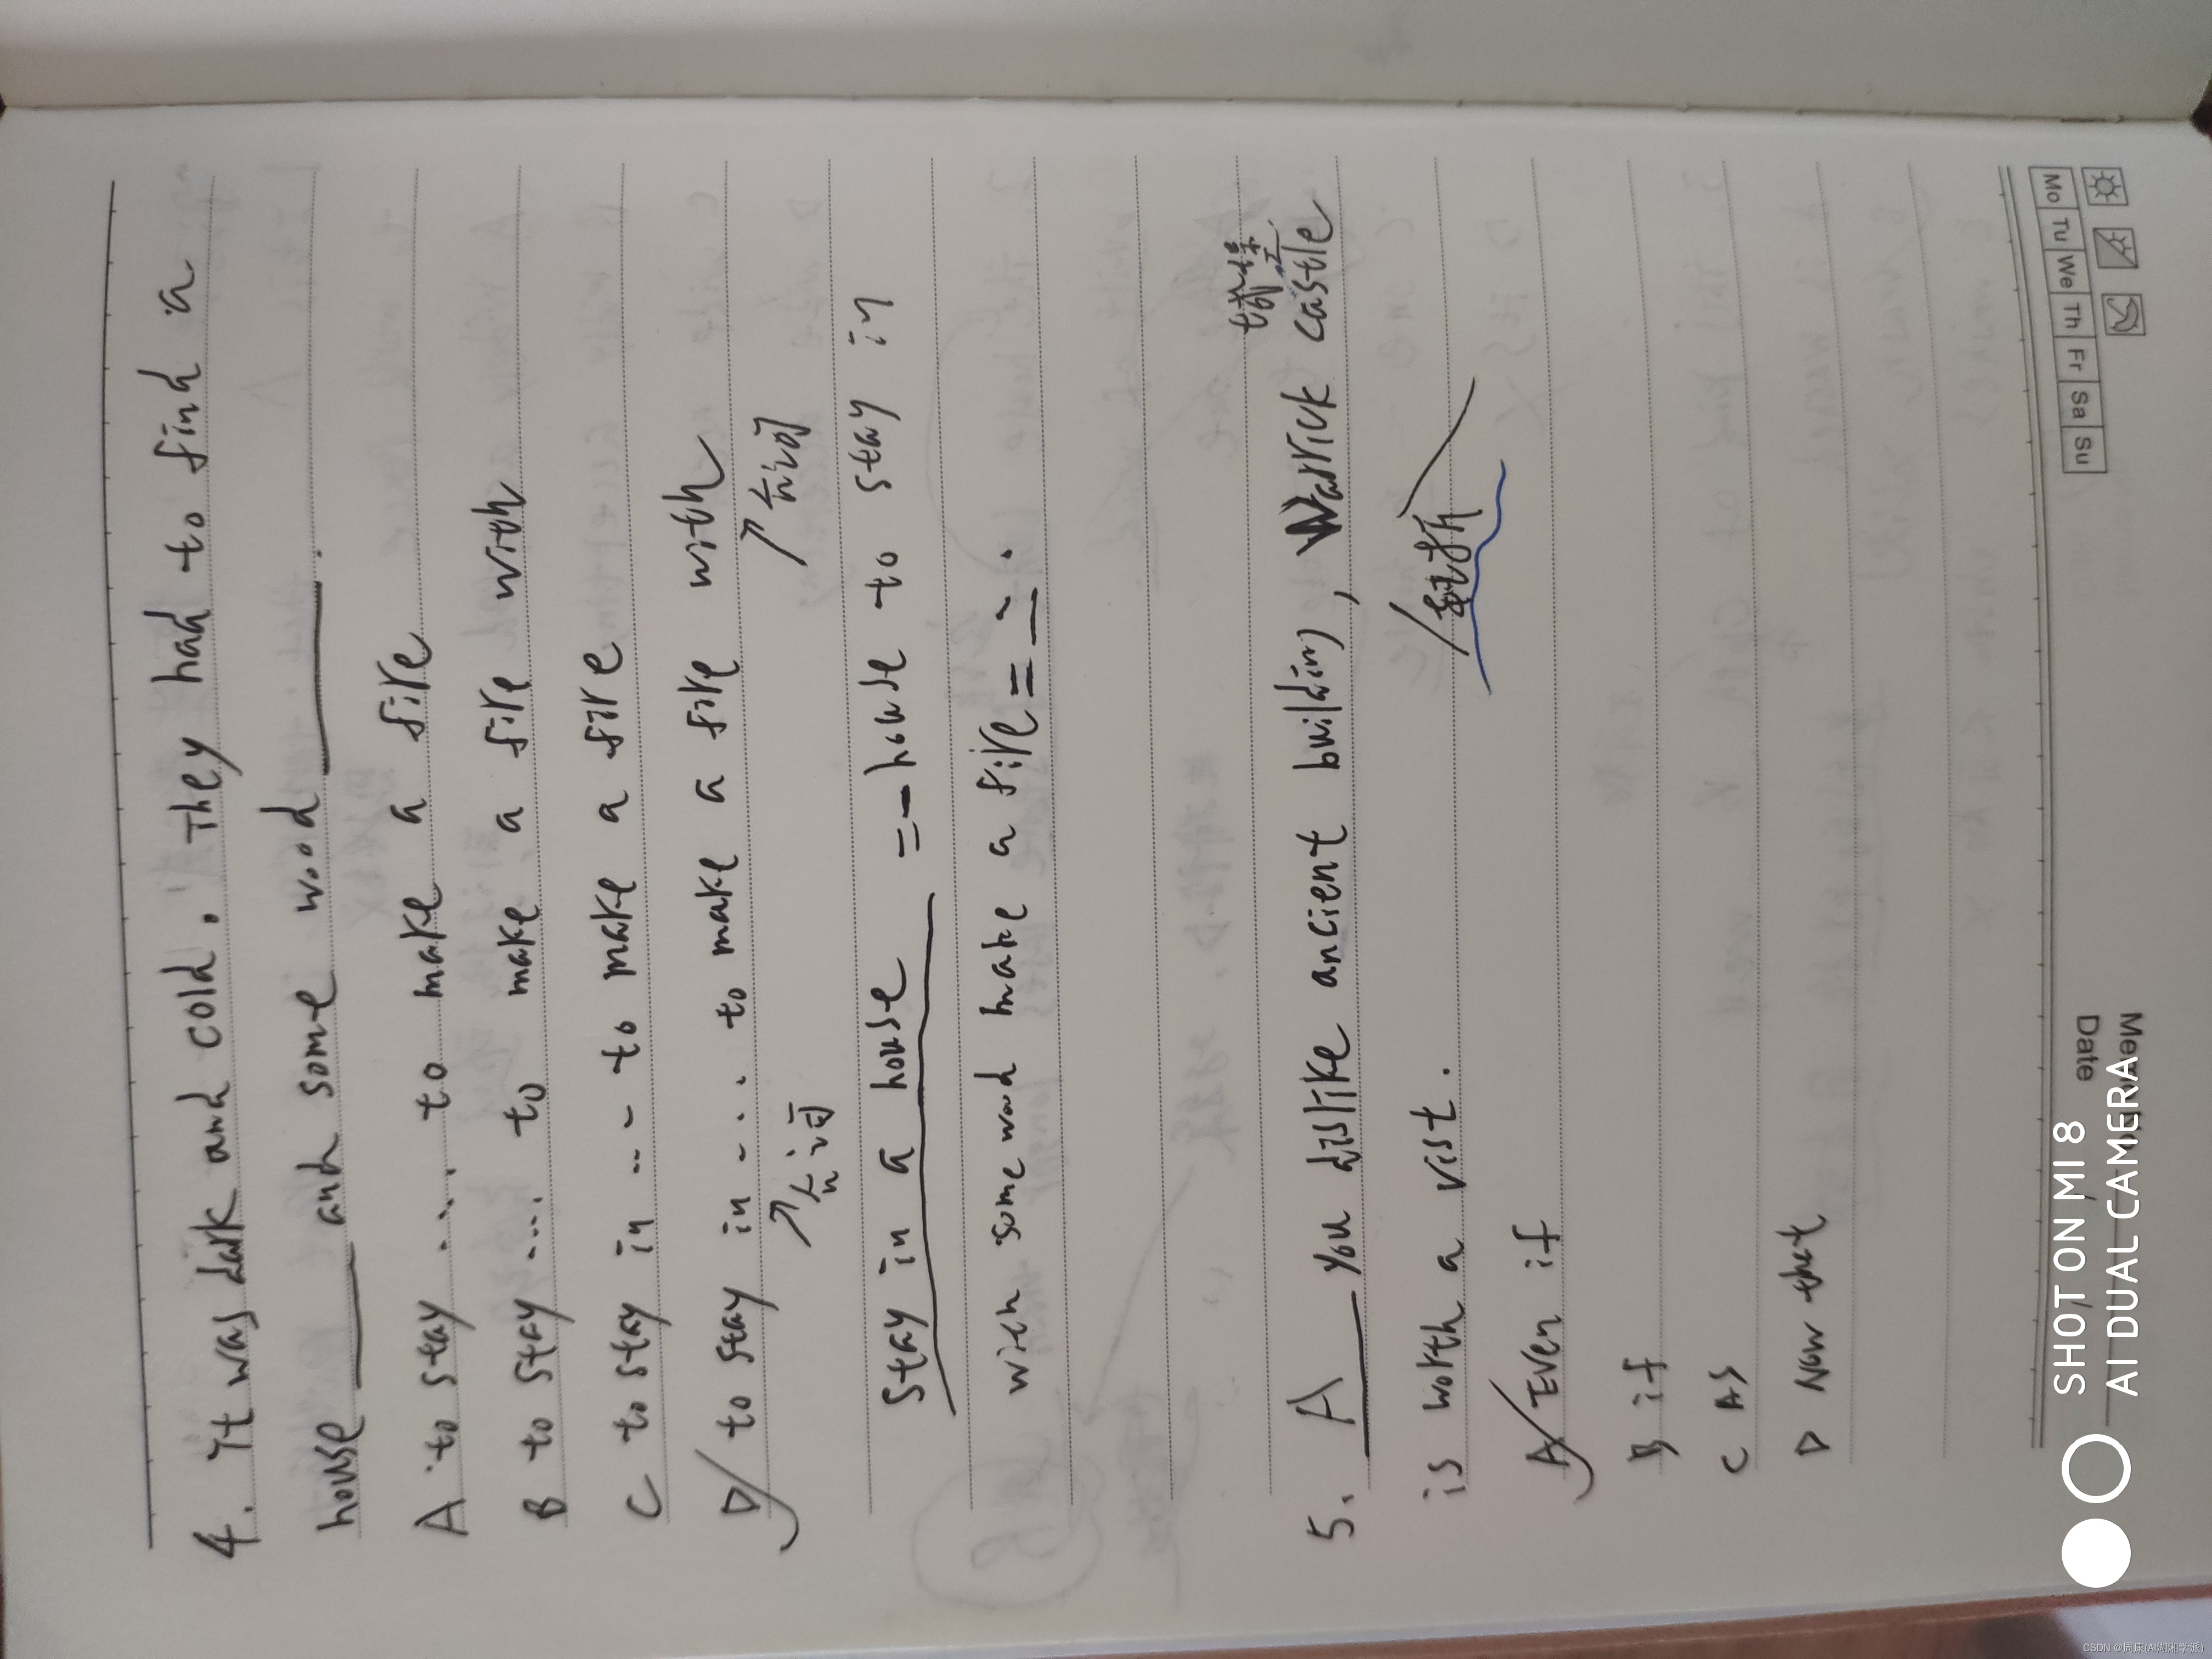 4. It was dark and cold. They had to find a
house ____ and some wood ____.
A to stay .... to make a fire
B to stay .... to make a fire with
C to stay in ... to make a fire
D to stay in .... to make a fire with
介词 介词
stay in a house = house to stay in
with some wood make a fire = ~.
城堡
5. A you dislike ancient building, Warrick castle
is worth a vist.
A Even if
B if
C As
D Now that
Mo Tu We Th Fr Sa Su
Date
SHOT ON MI 8
AI DUAL CAMERA
CSDN @周康(AI湖湘学派)